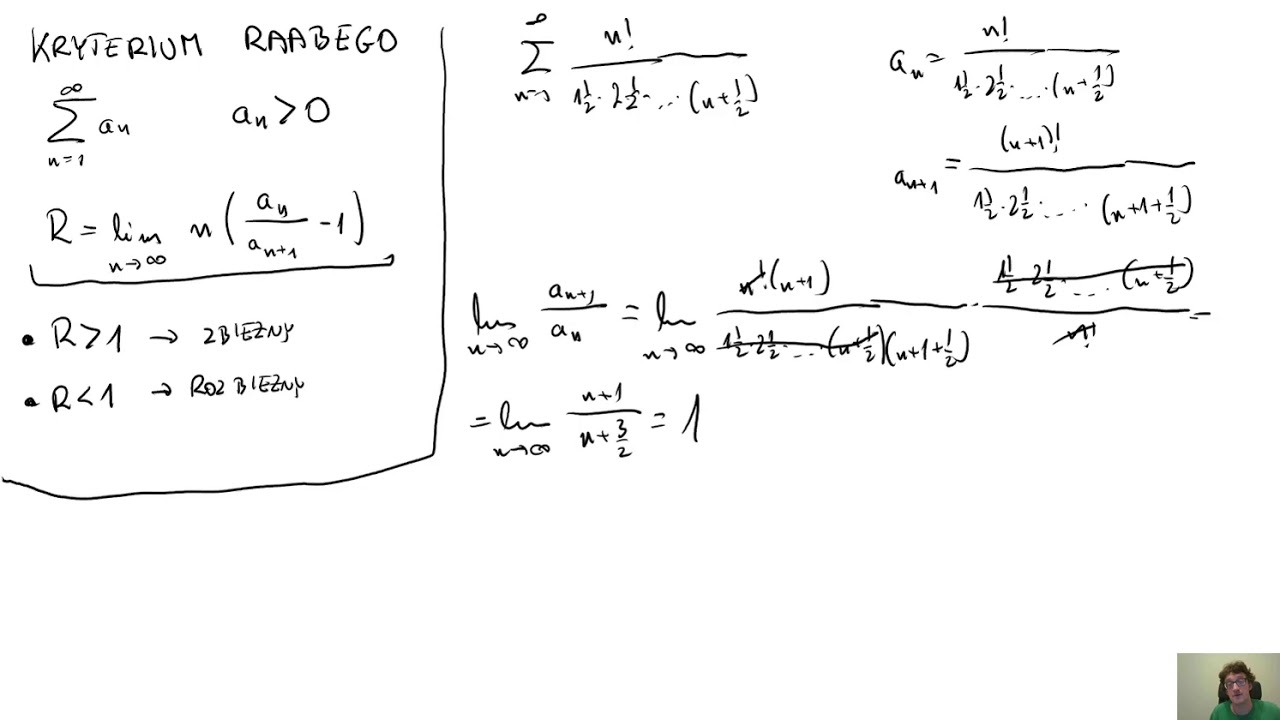 KRYTERIUM RAABEGO
∞
∑ aₙ   aₙ > 0
n=1
R = lim n (aₙ/aₙ₊₁ - 1)
n→∞
• R > 1 → ZBIEŻNY
• R < 1 → ROZBIEŻNY
∞
∑ n! / (1½ · 2½ · ... (n+½))
aₙ = n! / (1½ · 2½ · ... · (n+½))
aₙ₊₁ = (n+1)! / (1½ · 2½ · ... · (n+1+½))
lim aₙ₊₁/aₙ = lim n!(n+1) / (1½ · 2½ · ... · (n+½)(n+1+½)) · 1½ · 2½ · ... · (n+½) / n! =
n→∞   n→∞
= lim (n+1)/(n+3/2) = 1
n→∞